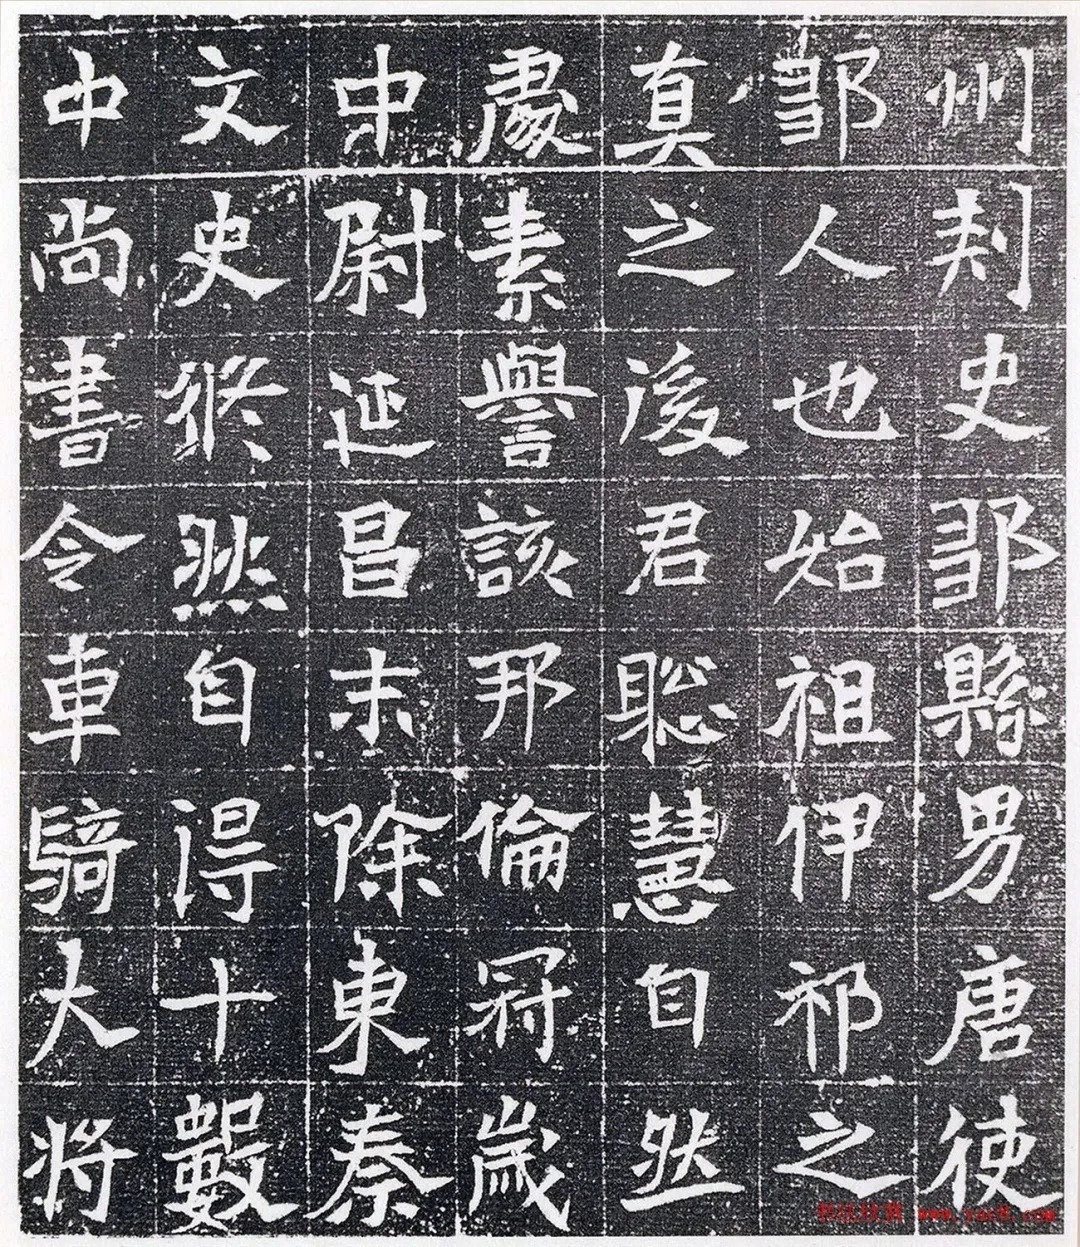 州刾史鄒縣男唐使
鄒人也始祖伊祁之
真之後君聰慧自然
素譽該邦倫冠歲
中尉延昌末除東秦
文史然自得十數
中尚書令車騎大將
书法欣赏 www.yac8.com